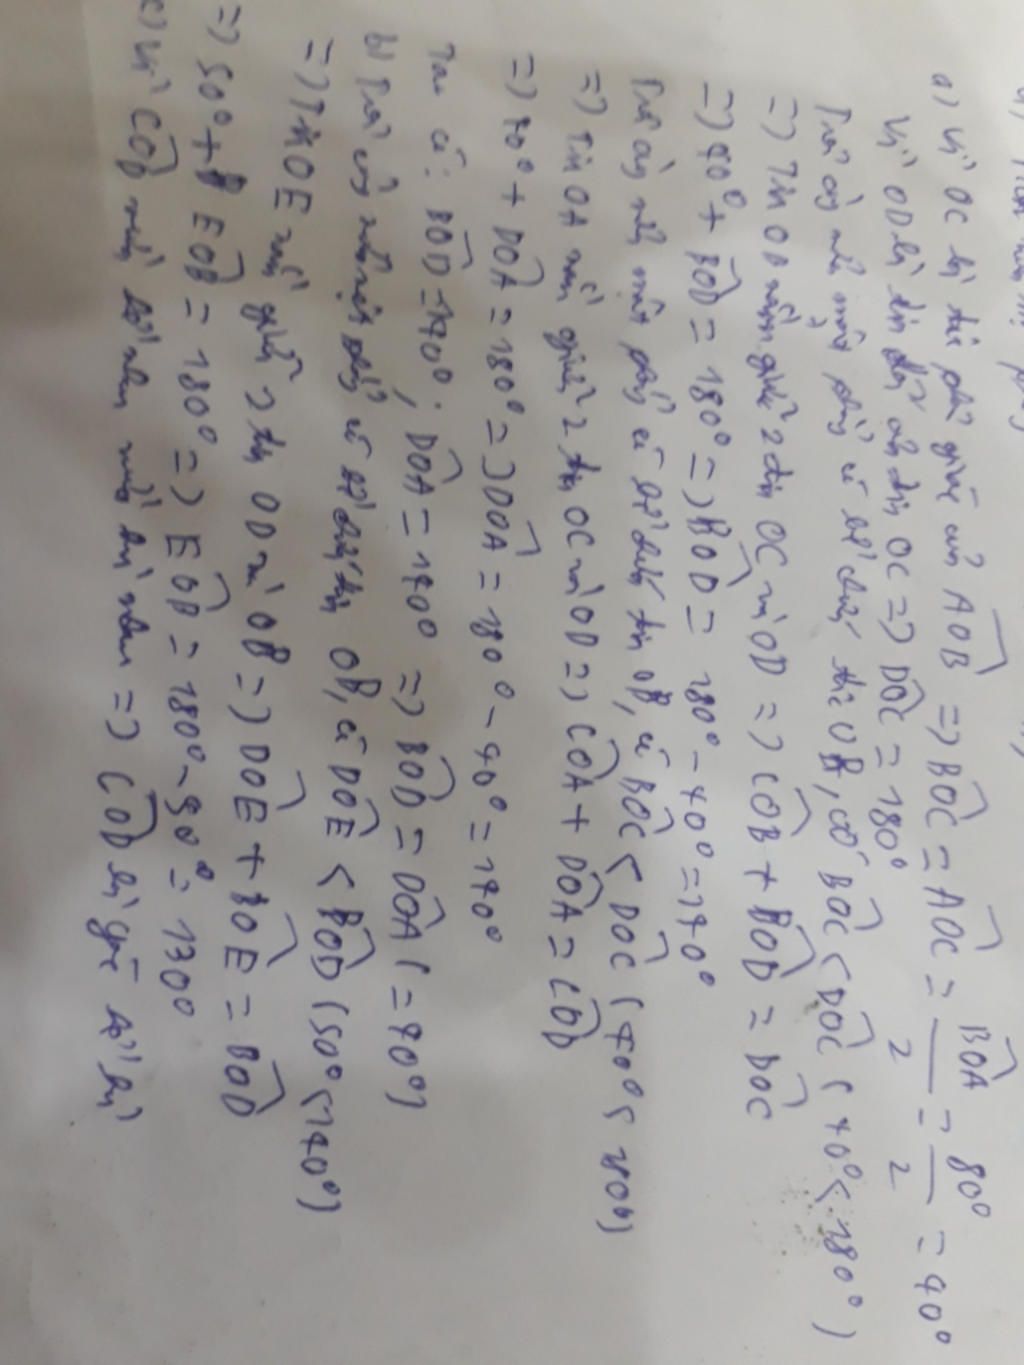 a) Vì OC là tia phân giác của AOB => BOC = AOC = BOA/2 = 80°/2 = 40°
Vì OD là tia đối của tia OC => DOC = 180°
Trên cùng nửa mặt phẳng có bờ chứa tia OB, có BOC < DOC (40° < 180°)
=> Tia OB nằm giữa 2 tia OC và OD => COB + BOD = DOC
=> 40° + BOD = 180° => BOD = 180° - 40° = 140°
Trên cùng nửa mặt phẳng có bờ chứa tia OB, có BOC < DOC (40° < 180°)
=> Tia OA nằm giữa 2 tia OC và OD => COA + DOA = COD
=> 40° + DOA = 180° => DOA = 180° - 40° = 140°
Ta có: BOD = 140°; DOA = 140° => BOD = DOA (= 40°)
b) Trên cùng nửa mặt phẳng có bờ chứa tia OB, có DOE < BOD (50° < 140°)
=> Tia OE nằm giữa 2 tia OD và OB => DOE + BOE = BOD
=> 50° + EOB = 180° => EOB = 180° - 50° = 130°
c) Vì COD => COD là góc